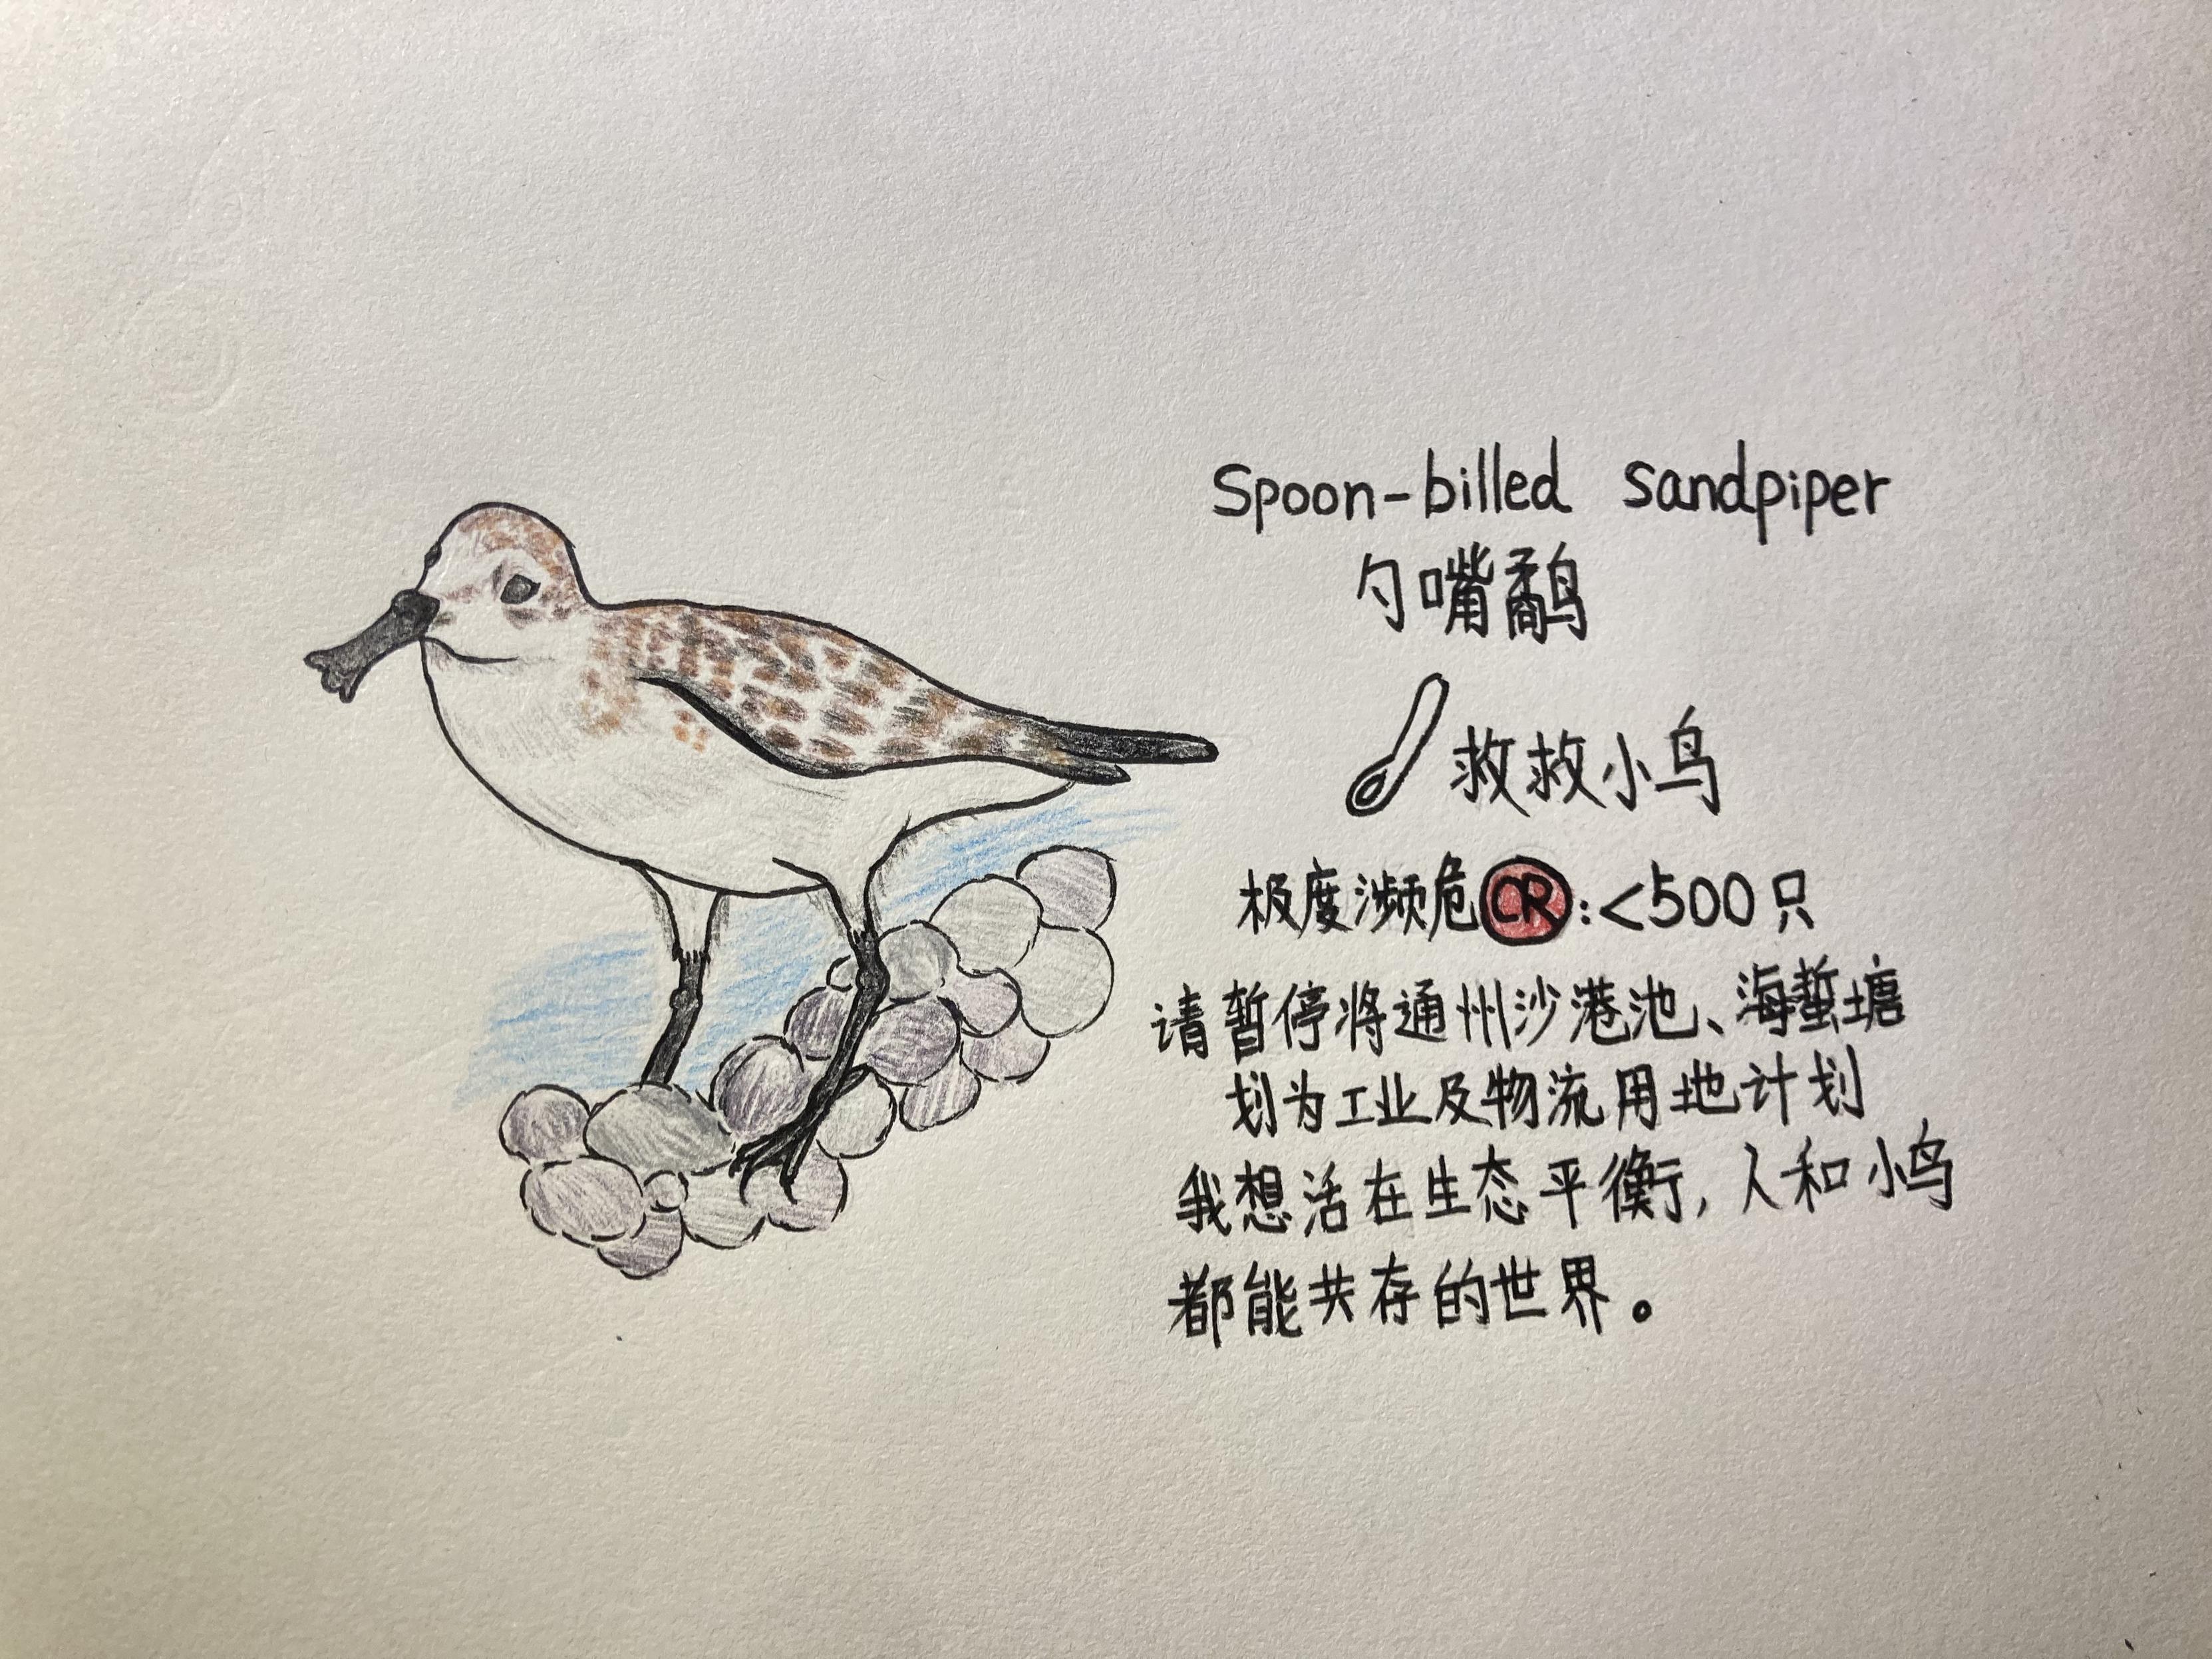 Spoon-billed sandpiper
勺嘴鹬
救救小鸟
极度濒危CR:<500只
请暂停将通州沙港池、海蜇塘
划为工业及物流用地计划
我想活在生态平衡,人和小鸟
都能共存的世界。